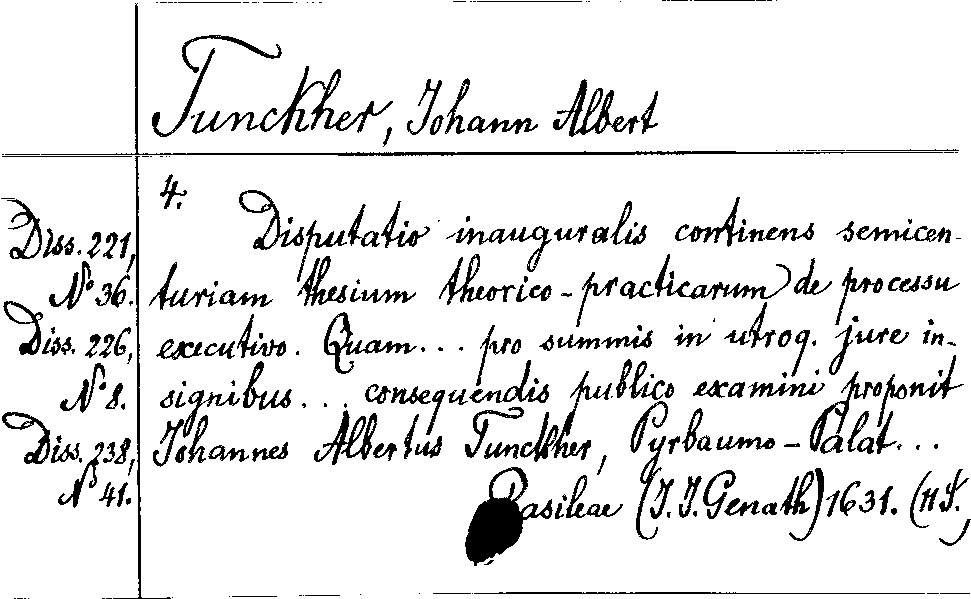 Tunckher, Johann Albert
4.
Disputatio inauguralis continens semicen-
Diss. 221,
N° 36. turiam thesium theorico-practicarum de processu
Diss. 226, executivo. Quam... pro summis in utroq. jure in-
N° 8. signibus... consequendis publico examini proponit
Diss. 238, Johannes Albertus Tunckher, Pyrbaumo-Palat...
N° 41. Basileae (J. J. Genath) 1631. (